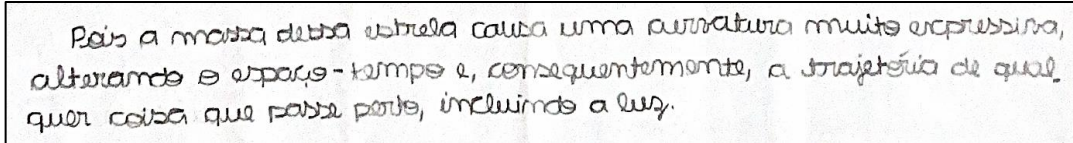 Pois a massa dessa estrela causa uma curvatura muito expressiva,
alterando o espaço-tempo e, consequentemente, a trajetória de qual
quer coisa que passe perto, incluindo a luz.